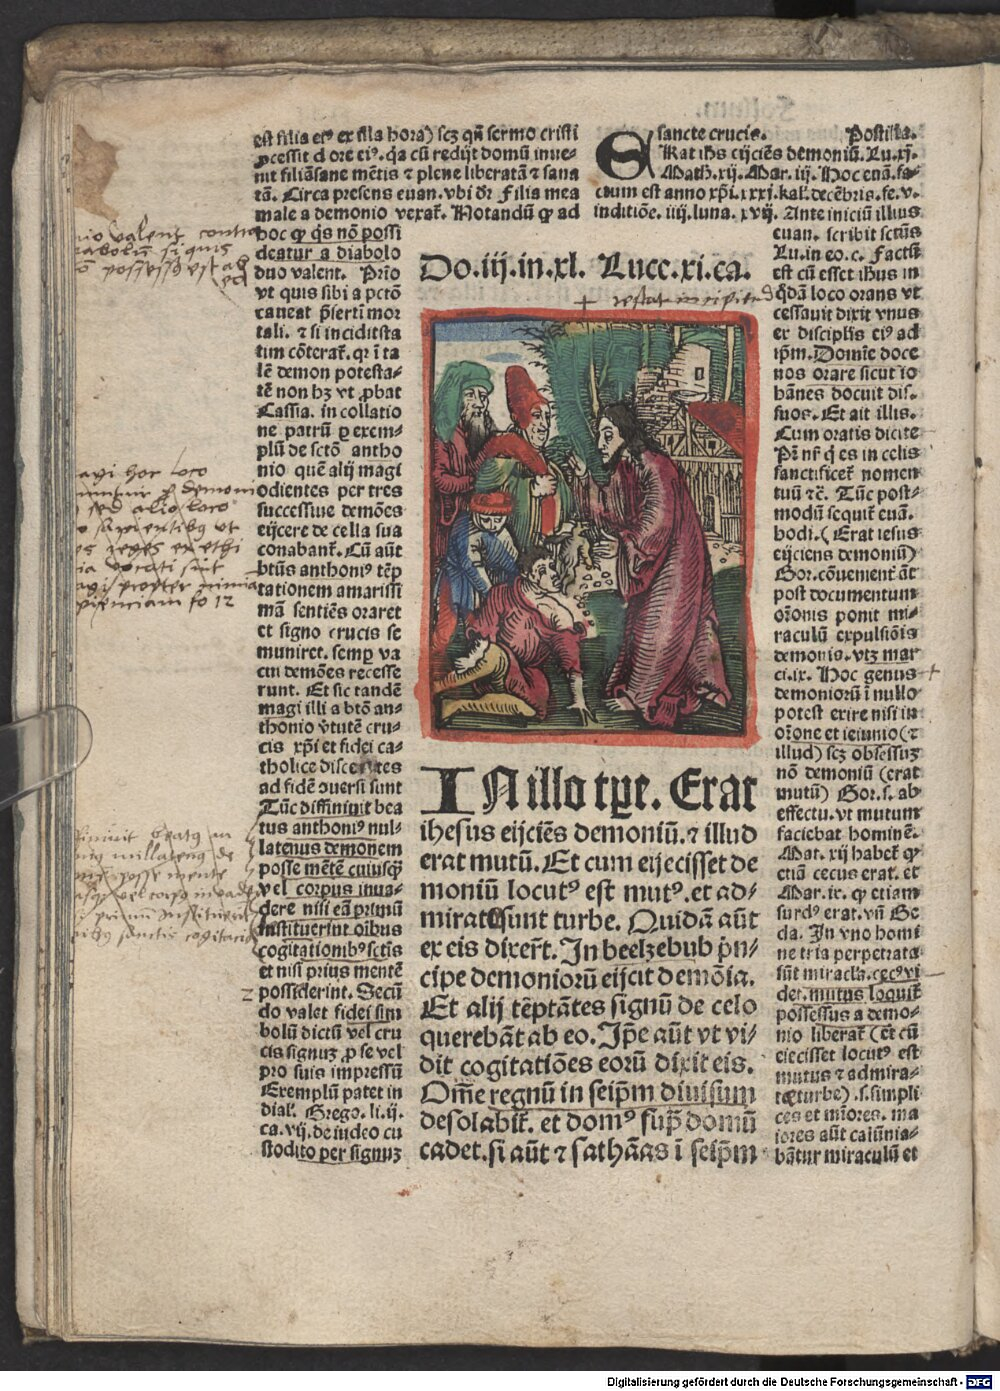 est filia eiꝰ ex illa hora) scꝫ qñ sermo cristi
ꝓcessit d ore eiꝰ. q̇a cū redijt domū inue-
nit filiāsane mētis ⁊ plene liberatā ⁊ sana
tā. Circa presens euan. vbi dr̄ Filia mea
male a demonio vexat᷑. Notandū ꝙ ad
hoc ꝙ q̇s nō possi
deatur a diabolo
duo valent. Prīo
vt quis sibi a pctō
caueat p̄sertī mor
tali. ⁊ si inciditsta
tim cōterat᷑. qꝛ ī ta
lē demon potesta-
tē non hꝫ vt ꝓbat
Cassia. in collatio
ne patrū ꝑ exem-
plū de sctō antho
nio quē alij magi
odientes per tres
successiue demōes
eijcere de cella sua
conabant᷑. Cū aūt
btūs anthoniꝰ tēp
tationem amarissi
mā sentiēs oraret
et signo crucis se
muniret. semꝑ va
cui demōes recesse
runt. Et sic tandē
magi illi a btō an-
thonio v̓tutē cru-
cis xp̄i et fidei ca-
tholice discentes
ad fidē ↄuersi sunt
Tūc diffiniuit bea
tus anthoniꝰ nul-
latenus demonem
posse mētē cuiusqꝫ
vel corpus inua-
dere nisi eā primū
instituerint oībus
cogitationibꝰ sctīs
et nisi prius mentē
possiderint. Secū
do valet fidei sim
bolū dictū vel cru
cis signuꝫ ꝓ se vel
pro suis impressū
Exemplū patet in
dial. Grego. li. ij.
ca. vij. de iudeo cu
stodito per signuꝫ
sancte crucis. Postilla.
ERat ihs eijciēs demoniū. Lu. xj.
Math. xij. Mar. iij. Hoc euā. fa-
ctum est anno xp̄i. xxxj. kal. decēbris. fe. v.
inditiōe. iiij. luna. xvij. Ante iniciū illius
euan. scribit sctūs
Lu. in eo. c. Factū
est cū esset ihūs in
q̇dā loco orans vt
cessauit dixit vnus
ex disciplis eiꝰ ad
ip̄m. Domīe doce
nos orare sicut io
hānes docuit dis-
suos. Et ait illis.
Cum oratis dicite
Pr̄ nr̄ q̇ es in celis
sanctificet᷑ nomen
tuū ⁊c̄. Tūc post-
modū sequit᷑ euā.
hodi. (Erat iesus
eijciens demoniū)
Gor. cōuenient᷑ āt
post documentum
or̄onis ponit mi-
raculū expulsiōis
demonis. vtꝫ mar
ci. ix. Hoc genus
demoniorū ī nullo
potest exire nisi in
or̄one et ieiunio (⁊
illud) scꝫ obsessuꝫ
nō demoniū (erat
mutū) Gor. s. ab
effectu. vt mutum
faciebat hominē.
Mat. xij habet᷑ ꝙ
etiā cecus erat. et
Mar. ix. ꝙ etiam
surdꝰ erat. vn̄ Be
da. In vno homi
ne tria perpetrata
sūt miracla. cecꝰ vi
det. mutus loquit᷑
possessus a demo-
nio liberat᷑ (Et cū
eiecisset locutꝰ est
mutus ⁊ admira-
te turbe). s. simpli
ces et miōres. ma
iores aūt calūnia-
bātur miraculū et
Do. iij. in. xl. Lucc. xi. ca.
IN illo tp̄e. Erat
ihesus eijciēs demoniū. ⁊ illud
erat mutū. Et cum eiecisset de
moniū locutꝰ est mutꝰ. et ad-
mirate sunt turbe. Quidā aūt
ex eis dixer̄t. In beelzebub p̄n-
cipe demoniorū eijcit demōia.
Et alij tēptātes signū de celo
querebāt ab eo. Ip̄e aūt vt vi-
dit cogitatiōes eorū dixit eis.
Om̄e regnū in seip̄m diuisum
desolabit᷑. et domꝰ sup̄ domū
cadet. si aūt ⁊ sathāas ī seip̄m
Digitalisierung gefördert durch die Deutsche Forschungsgemeinschaft - DFG